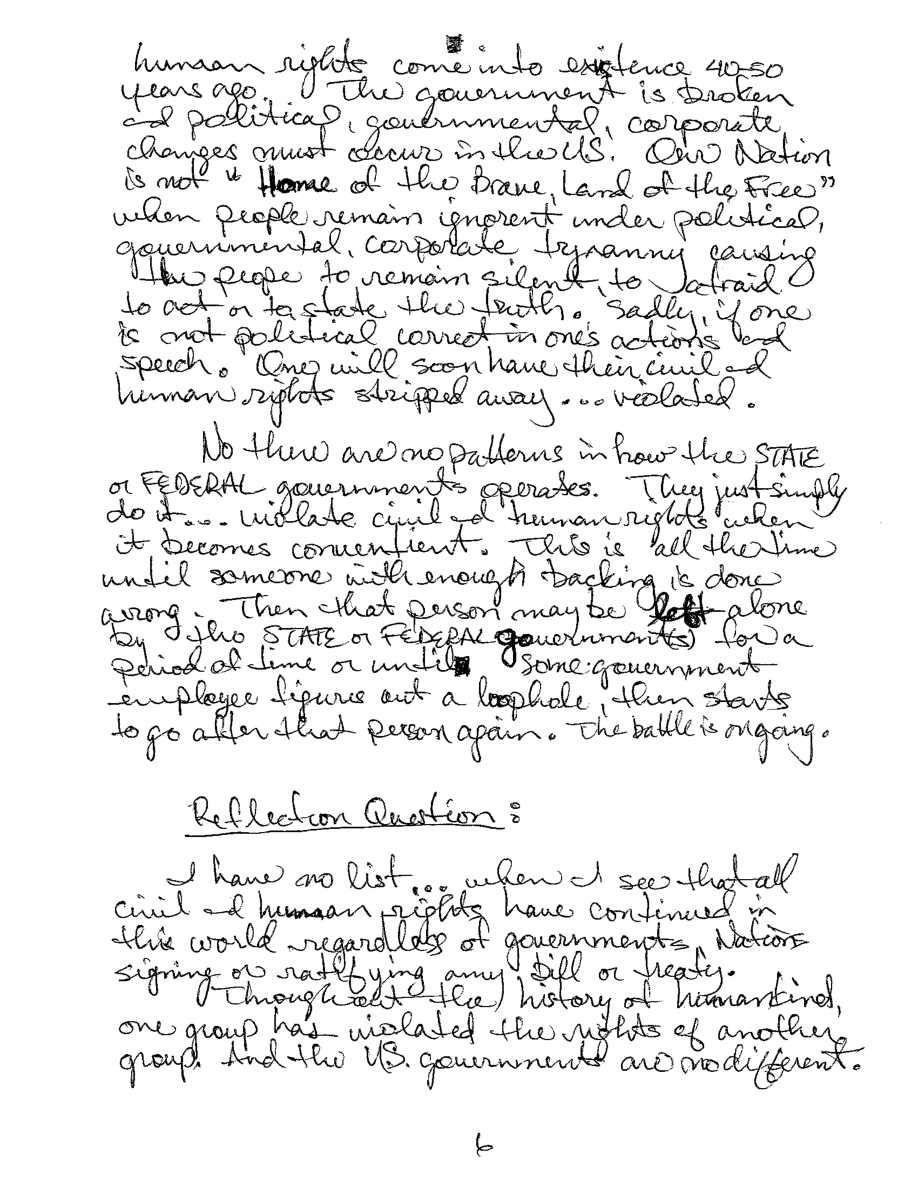 human rights come into existence 40-50
years ago. The government is broken
and political, governmental, corporate
changes must occur in the US. Our Nation
is not "Home of the Brave, Land of the Free"
when people remain ignorent under political,
governmental, corporate tyranny causing
the peope to remain silent, to afraid
to act or to state the truth. Sadly, if one
is not political correct in one's actions and
speech. One will soon have their civil and
human rights stripped away... violated.
No there are no patterns in how the STATE
or FEDERAL governments operates. They just simply
do it.... violate civil and human rights when
it becomes conventient. This is all the time
until someone with enough backing is done
wrong. Then that person may be left alone
by the STATE or FEDERAL government(s) for a
period of time or until some government
employee figures out a loophole, then starts
to go after that person again. The battle is ongoing.
Reflection Question:
I have no list... when I see that all
civil and human rights have continued in
this world regardless of governments, Nations
signing or ratifying any bill or treaty.
Throughout the history of humankind,
one group has violated the rights of another
group. And the U.S. governments are no different.
6